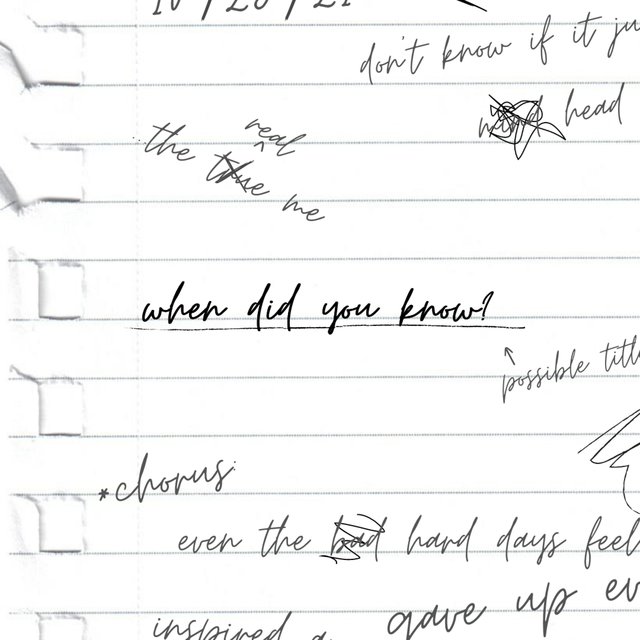 don't know if it ju
head
real
the true me
when did you know?
possible titl
*chorus:
even the bad hard days feel
inspired a gave up ev